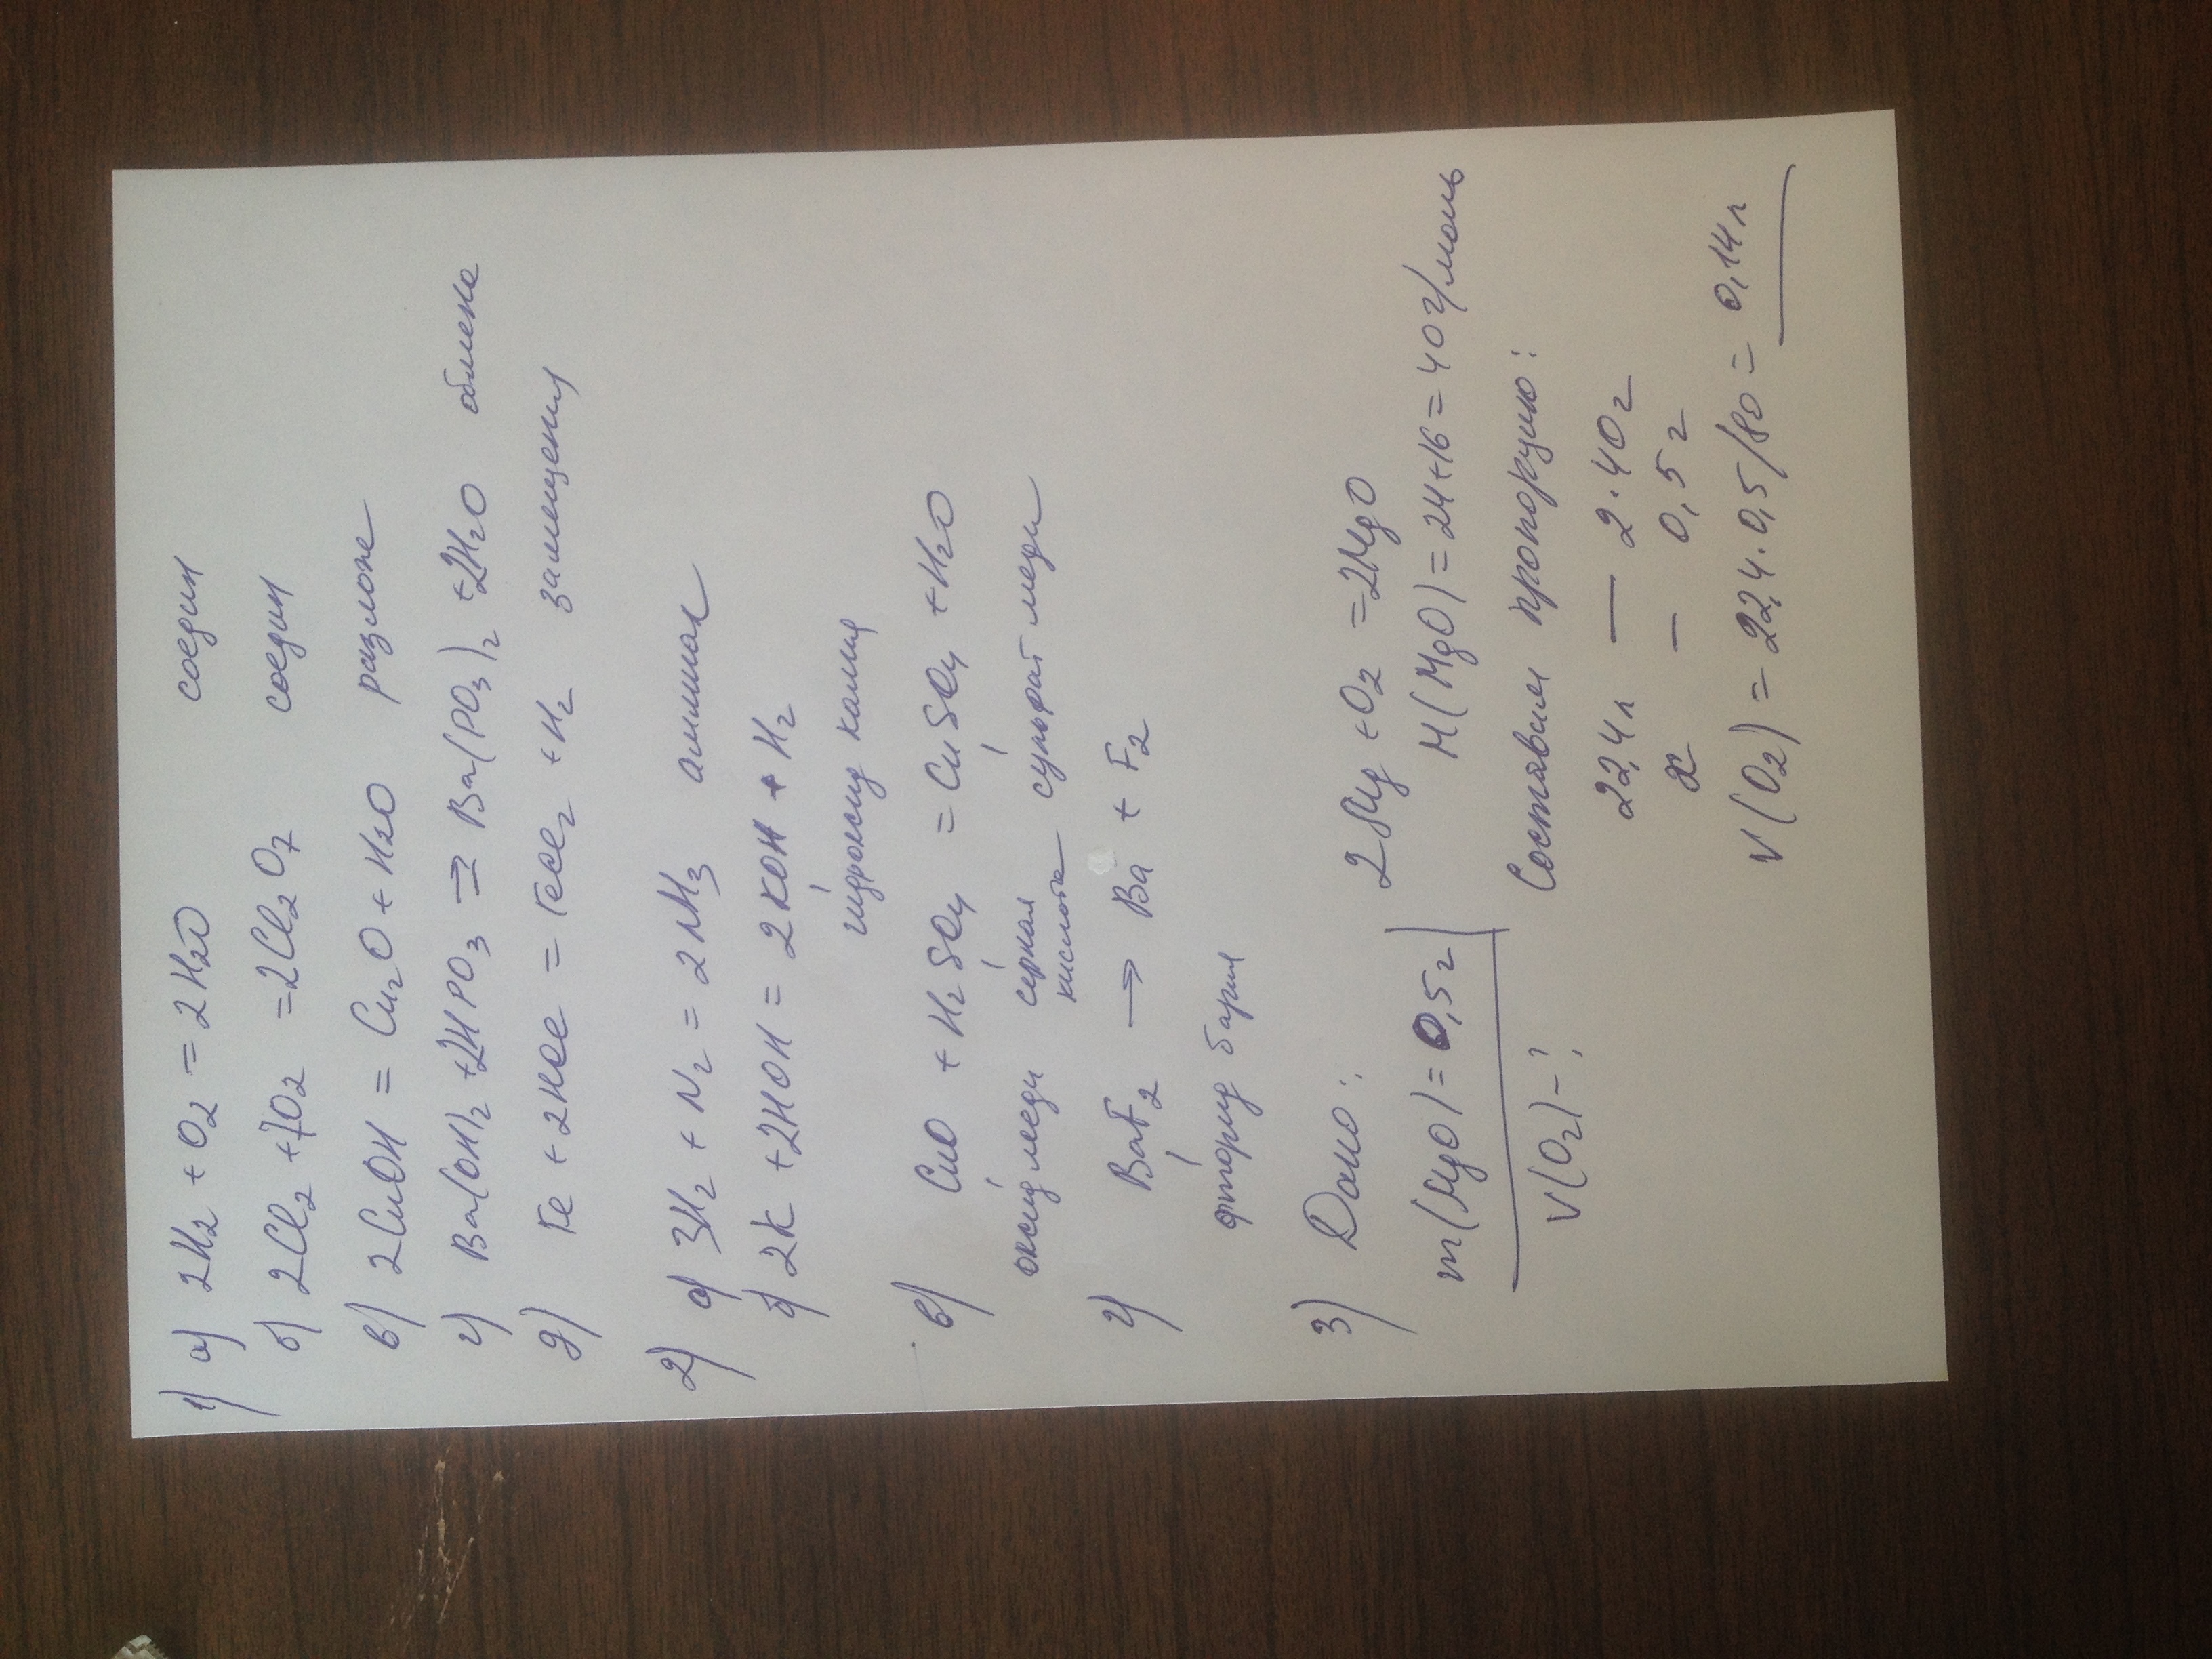 1) а) 2H₂ + O₂ = 2H₂O соедин
б) 2Cl₂ + 7O₂ = 2Cl₂O₇ соедин
в) 2CuOH = Cu₂O + H₂O разложе
г) Ba(OH)₂ + 2HPO₃ ⇒ Ba(PO₃)₂ + 2H₂O обмена
д) Fe + 2HCl = FeCl₂ + H₂ замещения
2) а) 3H₂ + N₂ = 2NH₃ аммиак
б) 2K + 2HOH = 2KOH + H₂
гидроксид калия
в) CuO + H₂SO₄ = CuSO₄ + H₂O
оксид меди серная кислота сульфат меди
г) BaF₂ → Ba + F₂
фторид бария
3) Дано: 2Mg + O₂ = 2MgO
m(MgO) = 0,5г M(MgO) = 24+16 = 40г/моль
V(O₂) - ? Составим пропорцию:
22,4л — 2·40г
x — 0,5г
V(O₂) = 22,4·0,5/80 = 0,14л